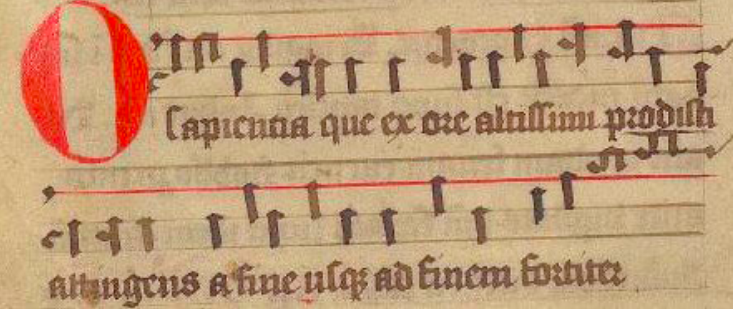 O sapientia que ex ore altissimi prodisti
attingens a fine usqꝫ ad finem fortiter